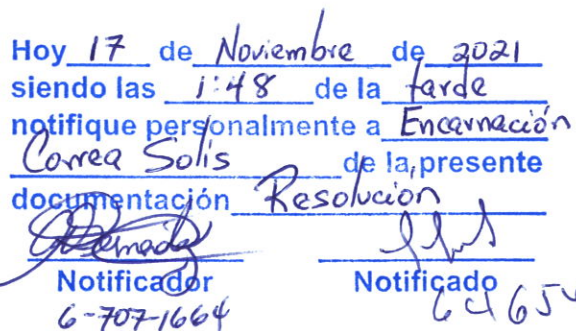 Hoy 17 de Noviembre de 2021
siendo las 1:48 de la tarde
notifique personalmente a Encarnación
Correa Solís de la presente
documentación Resolución
Notificador Notificado
6-707-1664